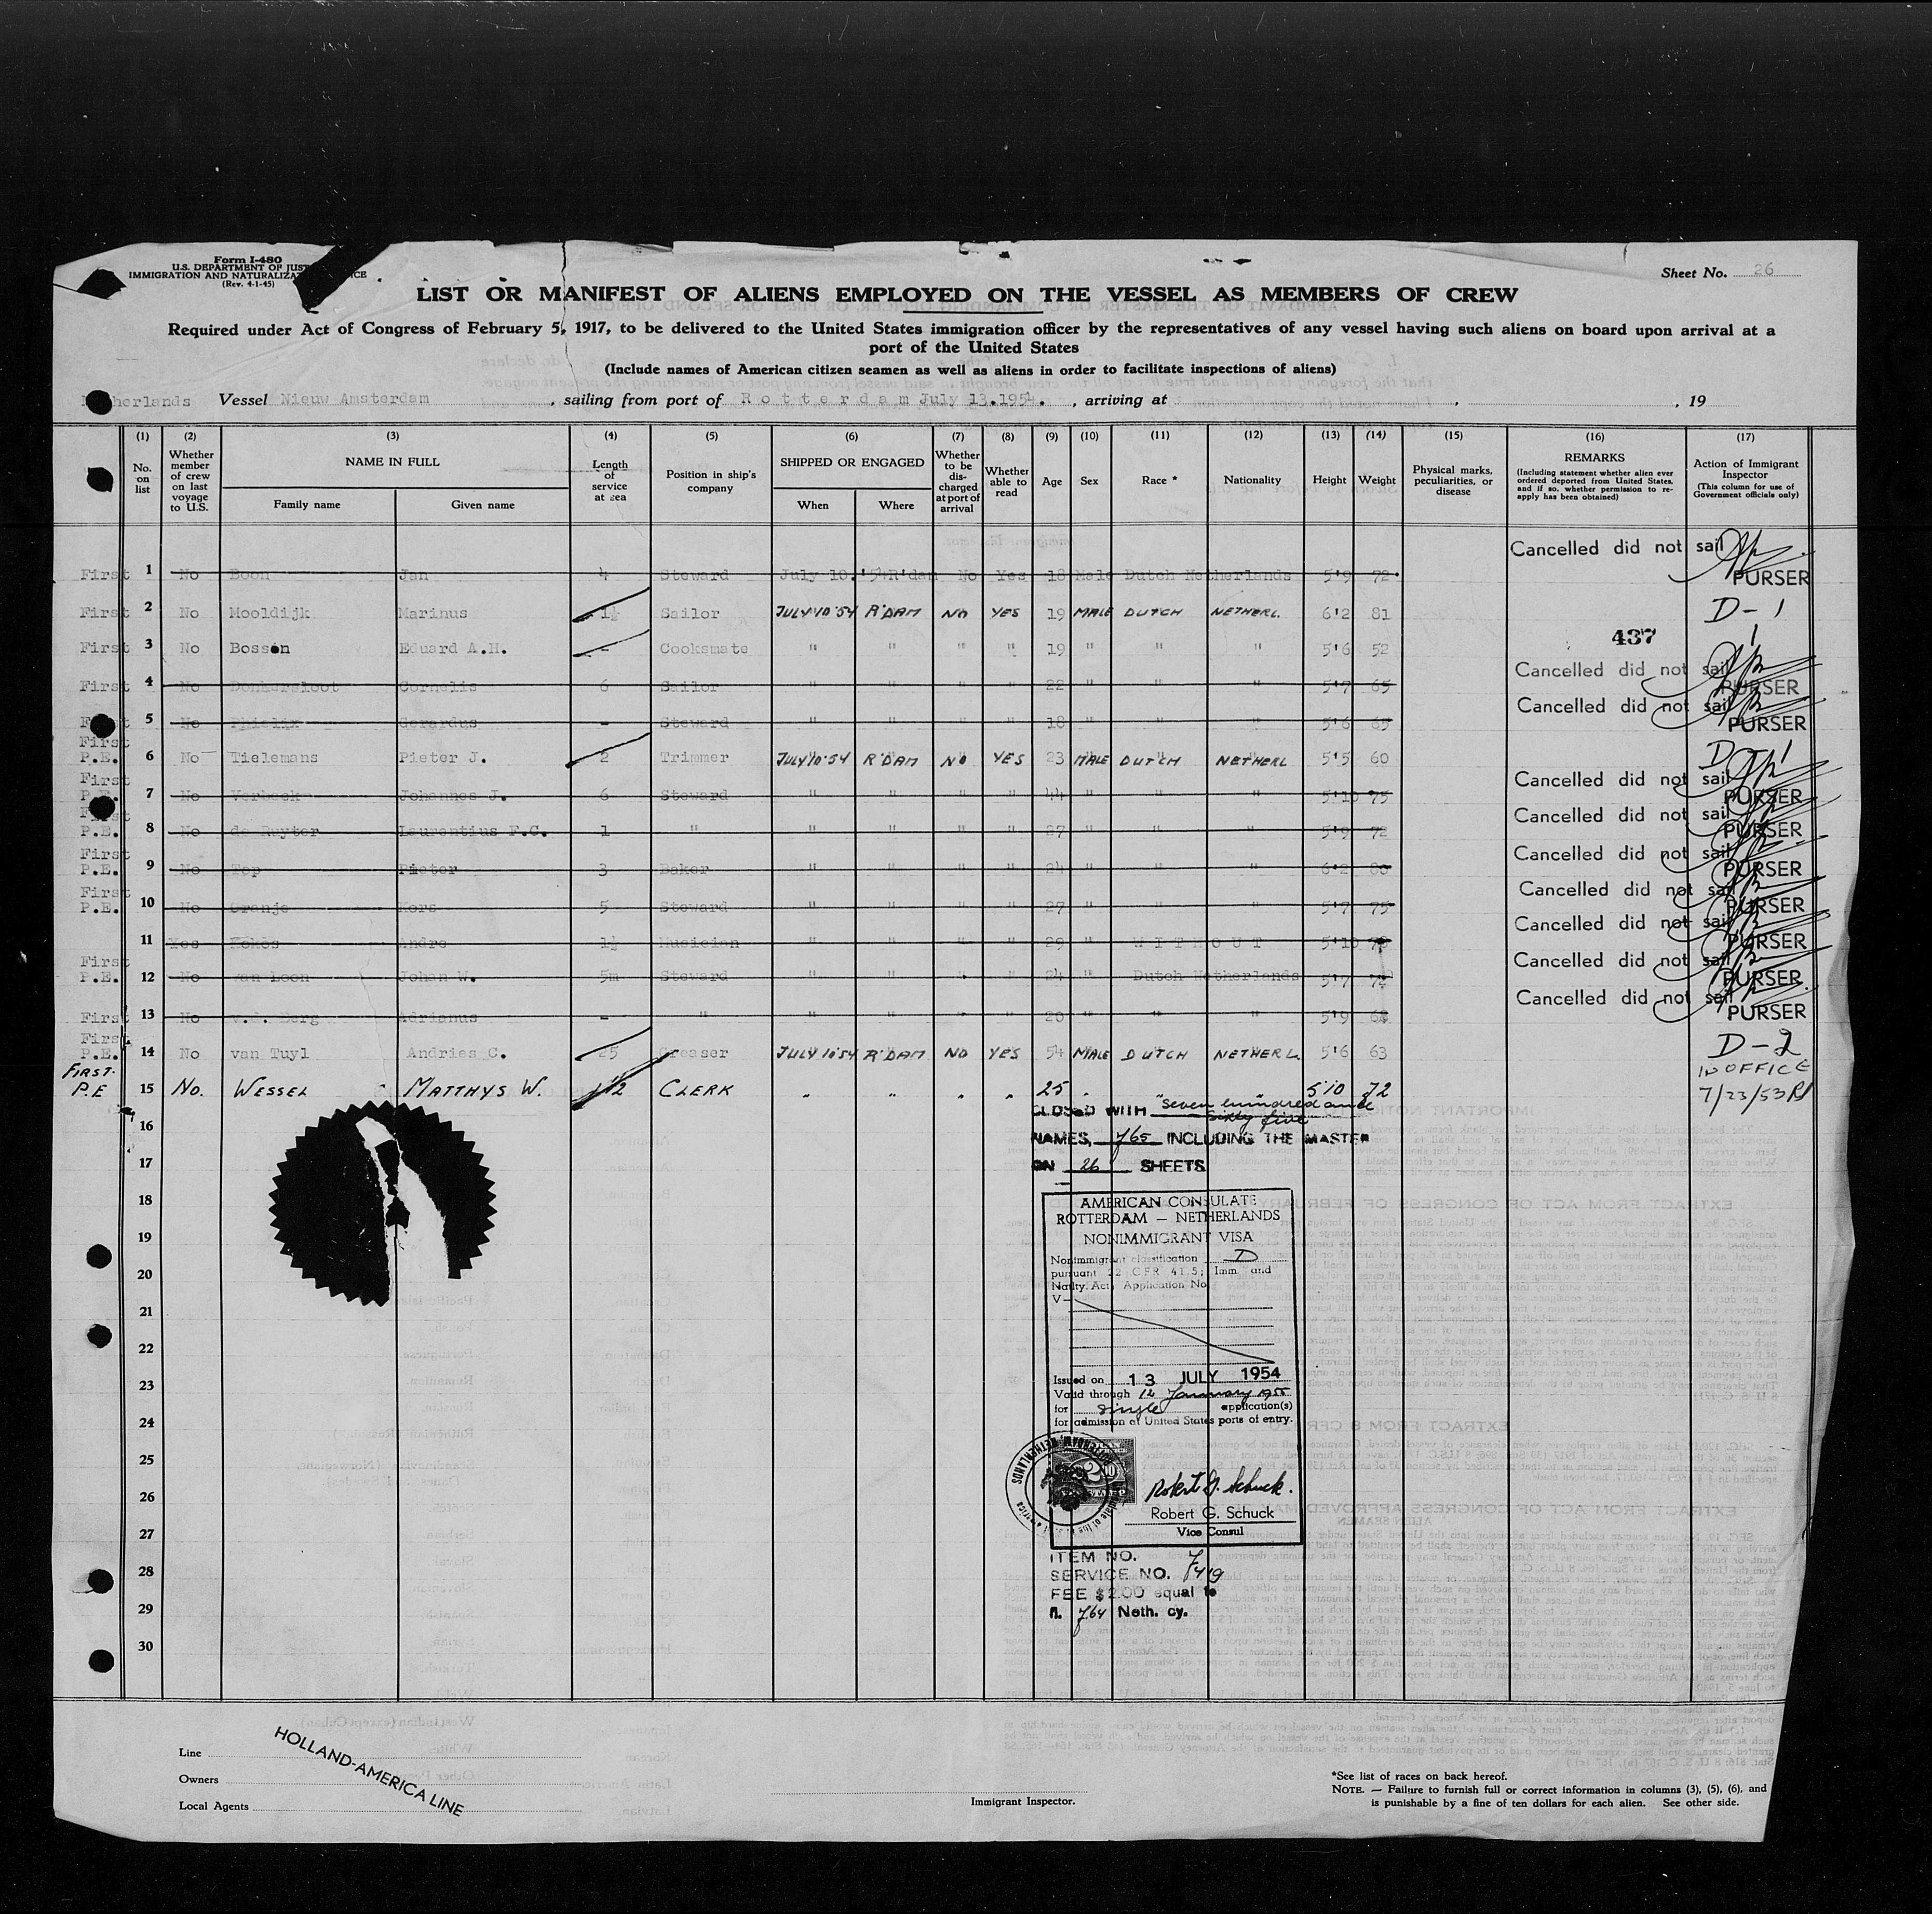 Form I-480
U.S. DEPARTMENT OF JUST
IMMIGRATION AND NATURALIZA CE
(Rev. 4-1-45)
Sheet No. 26
LIST OR MANIFEST OF ALIENS EMPLOYED ON THE VESSEL AS MEMBERS OF CREW
Required under Act of Congress of February 5, 1917, to be delivered to the United States immigration officer by the representatives of any vessel having such aliens on board upon arrival at a
port of the United States
(Include names of American citizen seamen as well as aliens in order to facilitate inspections of aliens)
herlands Vessel Nieuw Amsterdam, sailing from port of Rotterdam July 13.1954., arriving at , , 19
(1) (2) (3) (4) (5) (6) (7) (8) (9) (10) (11) (12) (13) (14) (15) (16) (17)
No. on list
Whether member of crew on last voyage to U.S.
NAME IN FULL
Family name Given name
Length of service at sea
Position in ship's company
SHIPPED OR ENGAGED
When Where
Whether to be discharged at port of arrival
Whether able to read
Age Sex Race * Nationality Height Weight
Physical marks, peculiarities, or disease
REMARKS
(Including statement whether alien ever ordered deported from United States, and if so, whether permission to re-apply has been obtained)
Action of Immigrant Inspector
(This column for use of Government officials only)
Cancelled did not sail
First 1 No Boon Jan 4 Steward July 10.'54 R'dam No Yes 18 Male Dutch Netherlands 5'9 72 PURSER
First 2 No Mooldijk Marinus 1½ Sailor JULY 10'54 R'DAM NO YES 19 MALE DUTCH NETHERL. 6'2 81 D-1
First 3 No Bossen Eduard A.H. - Cooksmate " " " " 19 " " " 5'6 52 437
Cancelled did not sail
First 4 No Donkersloot Cornelis 6 Sailor " " " " 22 " " " 5'7 65 PURSER
Cancelled did not sail
5 No Phielix Gerardus - Steward " " " " 18 " " " 5'6 65 PURSER
First P.E. 6 No Tielemans Pieter J. 2 Trimmer JULY 10'54 R'DAM NO YES 23 MALE DUTCH NETHERL 5'5 60 D
Cancelled did not sail
First P.E. 7 No Verbeek Johannes J. 6 Steward " " " " 44 " " " 5'10 75 PURSER
Cancelled did not sail
First P.E. 8 No de Ruyter Laurentius F.C. 1 " " " " " 27 " " " 5'9 72 PURSER
Cancelled did not sail
First P.E. 9 No Top Pieter 3 Baker " " " " 24 " " " 6'2 80 PURSER
Cancelled did not sail
First P.E. 10 No Oranje Kors 5 Steward " " " " 27 " " " 5'7 75 PURSER
Cancelled did not sail
11 Yes Kokos Andre 1½ Musician " " " " 29 " WITHOUT 5'10 PURSER
Cancelled did not sail
First P.E. 12 No van Loon Johan W. 5m Steward " " " " 24 " Dutch Netherlands 5'7 PURSER
Cancelled did not sail
First 13 No v.d. Berg Adrianus - " " " " " 20 " " " 5'9 PURSER
First P.E. 14 No van Tuyl Andries C. 25 Greaser JULY 10'54 R'DAM NO YES 54 MALE DUTCH NETHERL. 5'6 63 D-2
IN OFFICE
FIRST. P.E 15 No. WESSEL MATTHYS W. 1½ CLERK " " " " 25 " " " 5'10 72 7/23/53
16
17
18
19
20
21
22
23
24
25
26
27
28
29
30
CLOSED WITH seven hundred and
sixty five
NAMES, 765 INCLUDING THE MASTER
ON 26 SHEETS
AMERICAN CONSULATE
ROTTERDAM – NETHERLANDS
NONIMMIGRANT VISA
Nonimmigrant classification D
pursuant 22 CFR 41.5; Imm. and
Natlty. Act. Application No.
V-
Issued on 13 JULY 1954
Valid through 12 January 1955
for single application(s)
for admission at United States ports of entry.
Robert G. Schuck.
Robert G. Schuck
Vice Consul
ITEM NO. 7
SERVICE NO. 7449
FEE $2.00 equal to
fl. 764 Neth. cy.
Line
Owners
Local Agents
HOLLAND-AMERICA LINE
Immigrant Inspector.
*See list of races on back hereof.
NOTE. — Failure to furnish full or correct information in columns (3), (5), (6), and
is punishable by a fine of ten dollars for each alien. See other side.